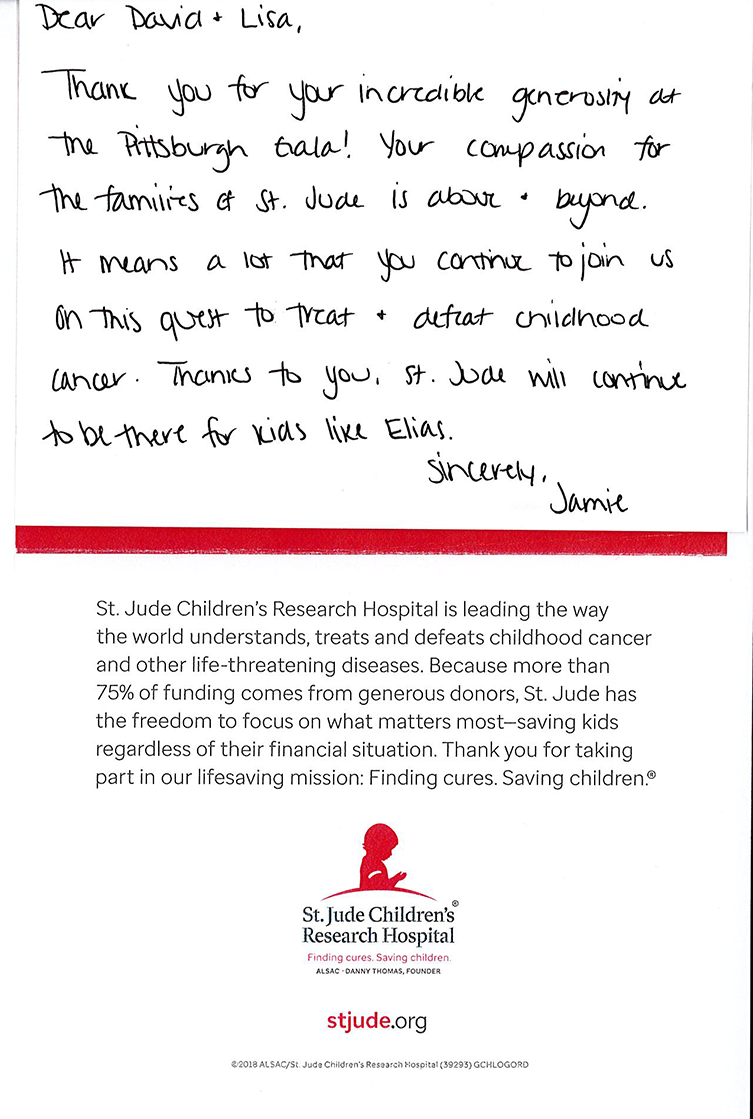 Dear David + Lisa,
Thank you for your incredible generosity at
the Pittsburgh Gala! Your compassion for
the families of St. Jude is above + beyond.
It means a lot that you continue to join us
on this quest to treat + defeat childhood
cancer. Thanks to you, St. Jude will continue
to be there for kids like Elias.
Sincerely,
Jamie
St. Jude Children’s Research Hospital is leading the way
the world understands, treats and defeats childhood cancer
and other life-threatening diseases. Because more than
75% of funding comes from generous donors, St. Jude has
the freedom to focus on what matters most—saving kids
regardless of their financial situation. Thank you for taking
part in our lifesaving mission: Finding cures. Saving children.®
St. Jude Children’s®
Research Hospital
Finding cures. Saving children.
ALSAC · DANNY THOMAS, FOUNDER
stjude.org
©2018 ALSAC/St. Jude Children's Research Hospital (39293) GCHLOGORD